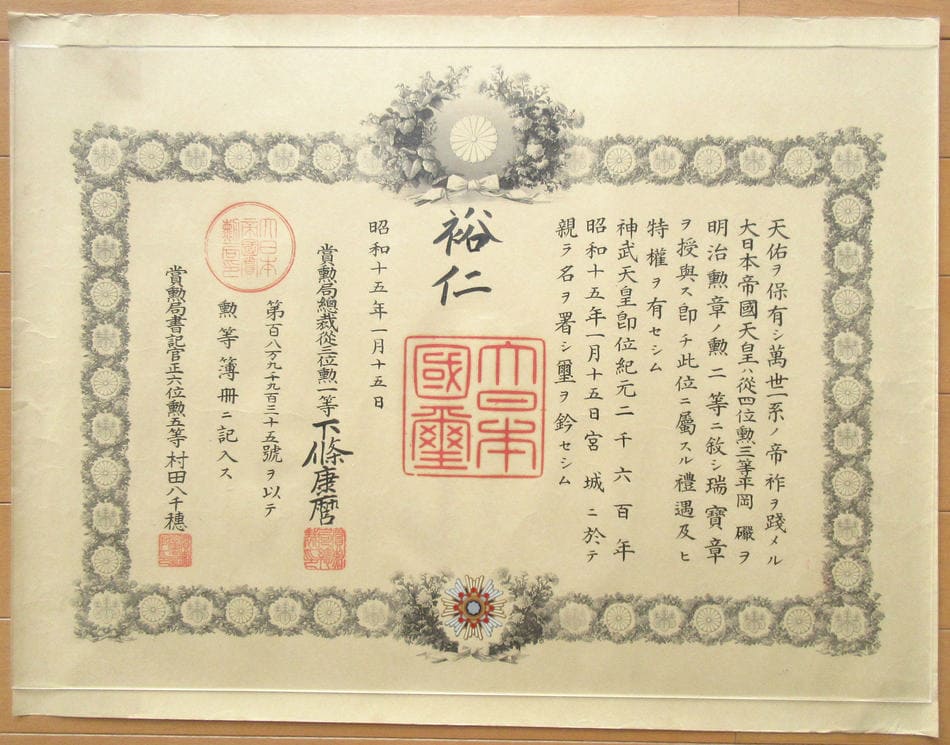 天佑ヲ保有シ萬世一系ノ帝祚ヲ踐メル
大日本帝國天皇ハ從四位勲三等平岡 ヲ
明治勲章ノ勲二等ニ敘シ瑞寶章
ヲ授與ス卽チ此位ニ屬スル禮遇及ヒ
特權ヲ有セシム
神武天皇卽位紀元二千六百年
昭和十五年一月十五日宮城ニ於テ
親ラ名ヲ署シ璽ヲ鈐セシム
裕仁
大日本
國璽
昭和十五年一月十五日
賞勲局總裁從三位勲一等下條康麿
第百八万九千九百三十五號ヲ以テ
勲等簿冊ニ記入ス
大日本
帝國賞
勲局印
賞勲局書記官正六位勲五等村田八千穗